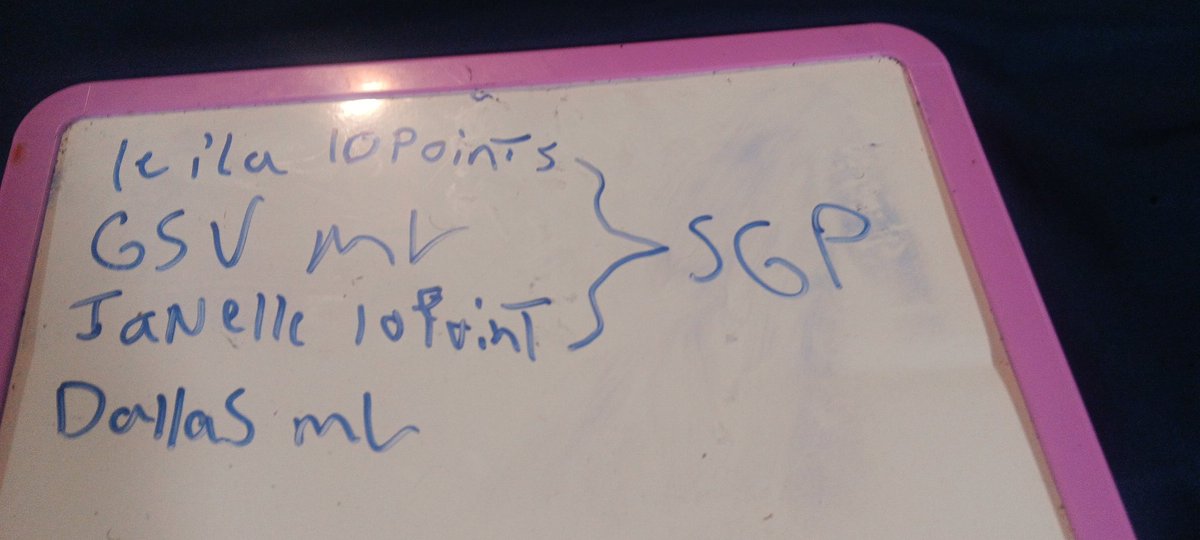 leila 10 Points
GSV mL
JaNelle 10 Point
SGP
DallaS mL